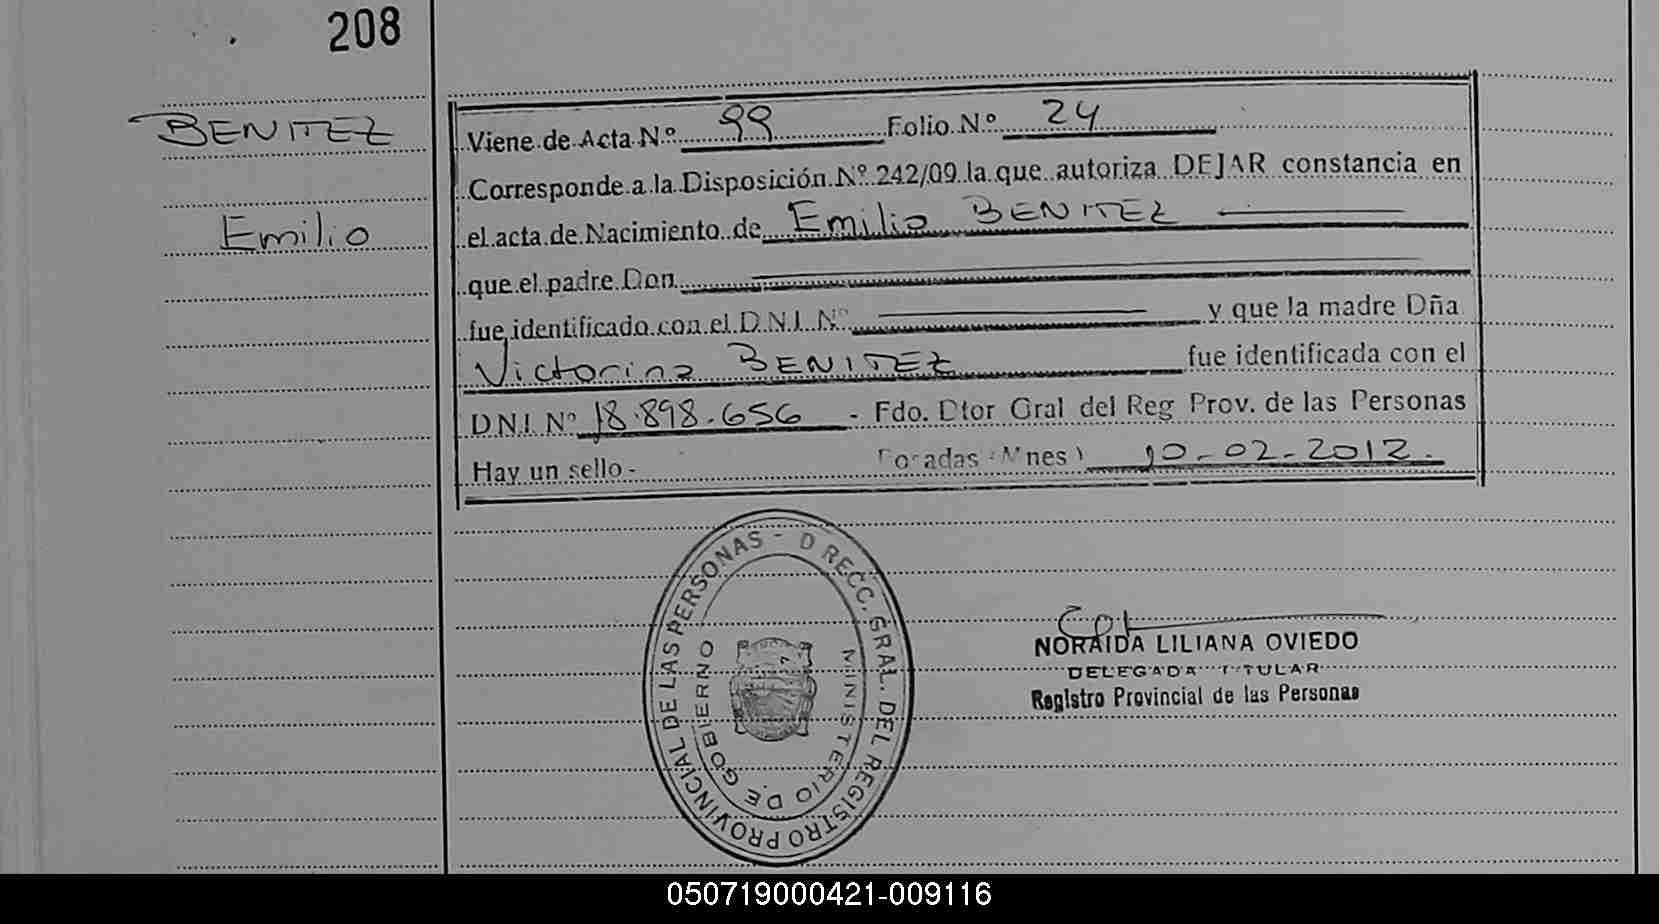 208
BENITEZ
Emilio
Viene de Acta Nº 99 Folio Nº 24
Corresponde a la Disposición Nº 242/09 la que autoriza DEJAR constancia en
el acta de Nacimiento de Emilio BENITEZ
que el padre Don
fue identificado con el D.N.I. Nº y que la madre Dña
Victorina BENITEZ fue identificada con el
D.N.I. Nº 18.898.656 - Fdo. Dtor Gral del Reg Prov. de las Personas
Hay un sello - Posadas (Mnes) 10-02-2012.
DIRECC. GRAL. DEL REGISTRO PROVINCIAL DE LAS PERSONAS -
MINISTERIO DE GOBIERNO
NORAIDA LILIANA OVIEDO
DELEGADA TITULAR
Registro Provincial de las Personas
050719000421-009116